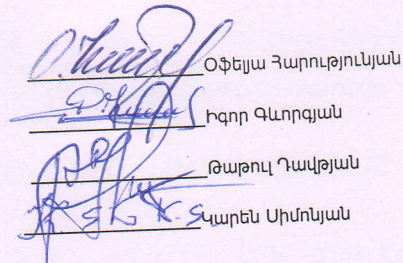 Օֆելյա Հարությունյան
Իգոր Գևորգյան
Թաթուլ Դավթյան
Կարեն Սիմոնյան